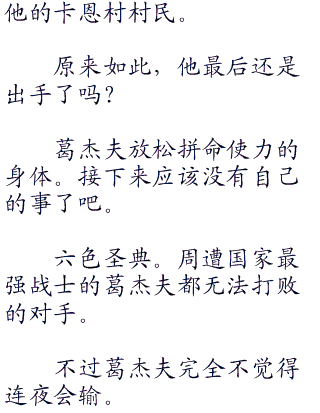 他的卡恩村村民。
原来如此，他最后还是
出手了吗？
葛杰夫放松拼命使力的
身体。接下来应该没有自己
的事了吧。
六色圣典。周遭国家最
强战士的葛杰夫都无法打败
的对手。
不过葛杰夫完全不觉得
连夜会输。